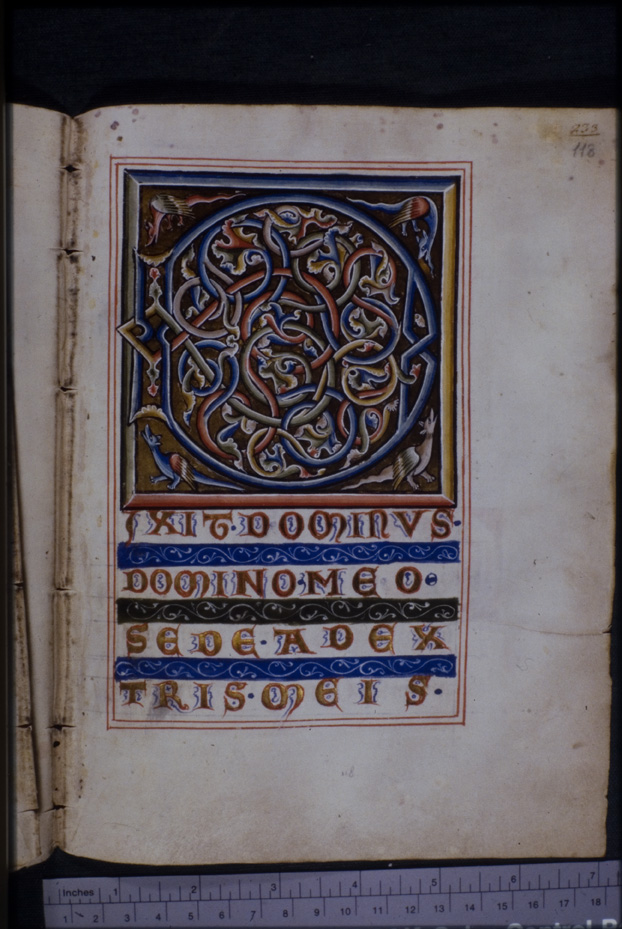 233
118
D
IXIT·DOMINVS·
DOMINO·MEO·
SEDE·ADEX
TRIS·MEIS·
Inches 1 2 3 4 5 6 7
1 2 3 4 5 6 7 8 9 10 11 12 13 14 15 16 17 18